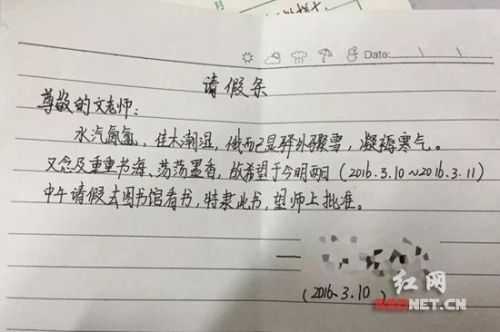 Date:
请假条
尊敬的文老师:
水汽氤氲,佳木潮湿,俄而已是驿外骤雪,凝稠寒气。
又念及重重书海、荡荡墨香,故希望于今明两日(2016.3.10~2016.3.11)
中午请假去图书馆看书,特隶此书,望师上批准。
(2016.3.10)
红网
NET.CN